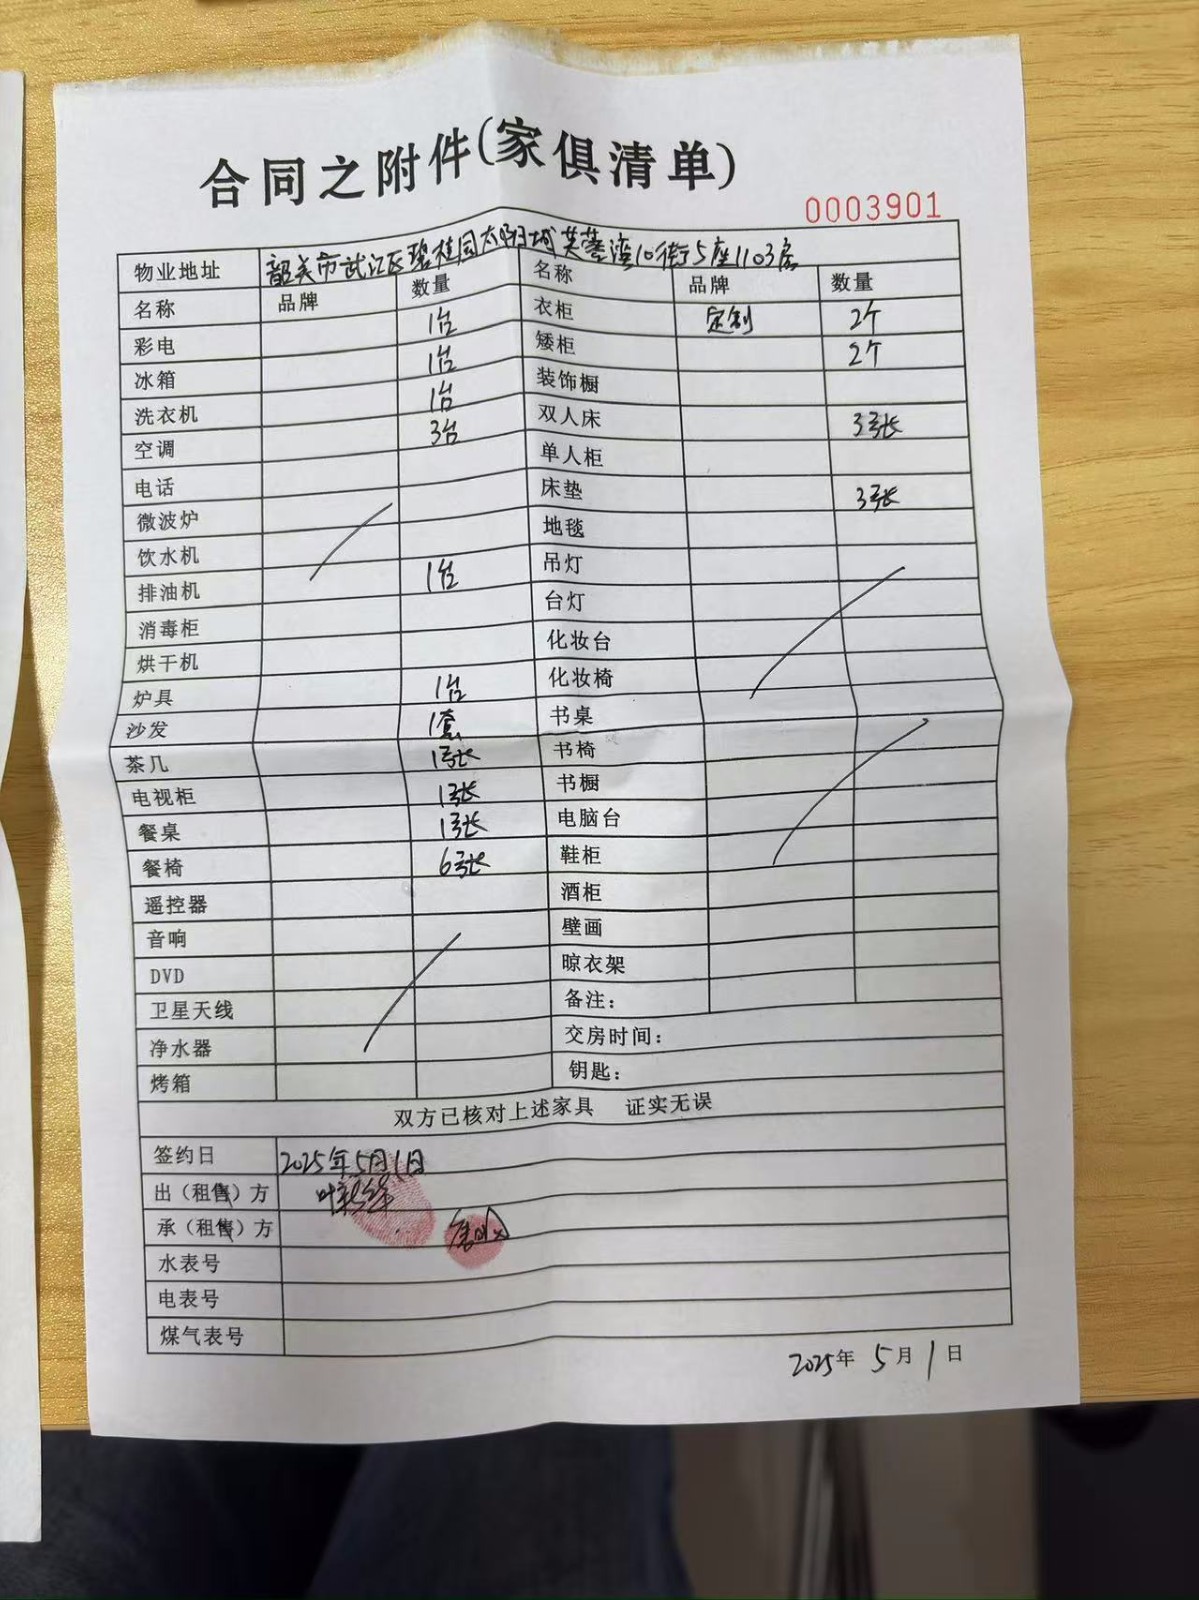 合同之附件(家俱清单)
0003901
物业地址 韶关市武江区碧桂园太阳城芙蓉湾10街5座1103房
名称 品牌 数量 名称 品牌 数量
彩电 1台 衣柜 定制 2个
冰箱 1台 矮柜 2个
洗衣机 1台 装饰橱
空调 3台 双人床 3张
电话 单人柜
微波炉 床垫 3张
饮水机 地毯
排油机 1台 吊灯
消毒柜 台灯
烘干机 化妆台
炉具 1台 化妆椅
沙发 1套 书桌
茶几 1张 书椅
电视柜 1张 书橱
餐桌 1张 电脑台
餐椅 6张 鞋柜
遥控器 酒柜
音响 壁画
DVD 晾衣架
卫星天线 备注：
净水器 交房时间：
烤箱 钥匙：
双方已核对上述家具 证实无误
签约日 2025年5月1日
出（租售）方
承（租售）方
水表号
电表号
煤气表号
2025年 5月1日